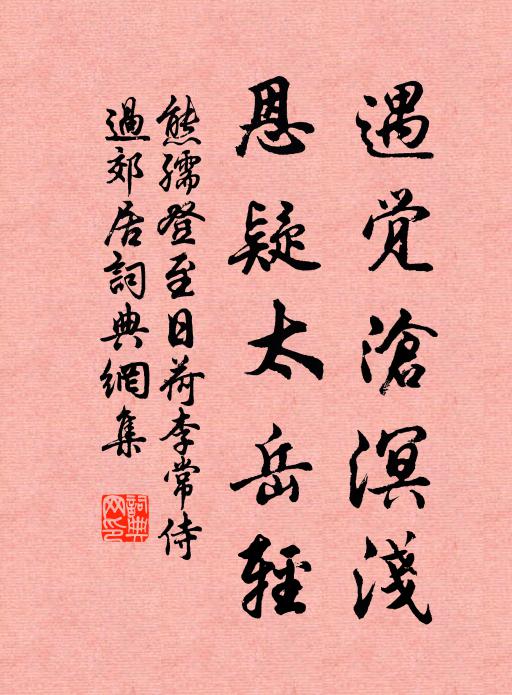 遇觉滄溟淺
恩疑太岳輕
熊孺登至日荷李常侍
過郊居詞典網集
詞典網印